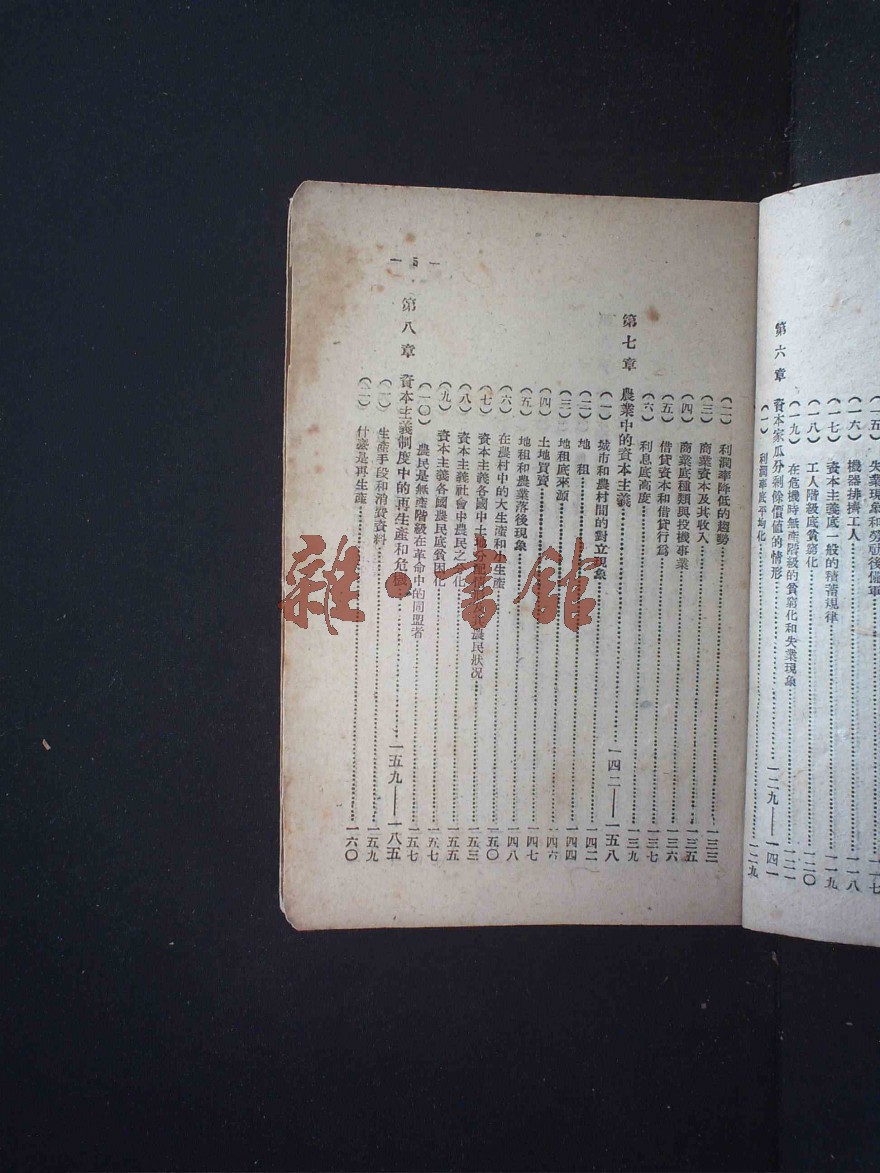 （一五）失業現象和勞動後備軍…………一一七
（一六）機器排擠工人…………一一八
（一七）資本主義底一般的積蓄規律…………一一九
（一八）工人階級底貧窮化…………一二〇
（一九）在危機時無產階級的貧窮化和失業現象…………一二一
第六章 資本家瓜分剩餘價値的情形…………一二九——一四一
（一）利潤率底平均化…………一二九
— 5 —
（二）利潤率降低的趨勢…………一三三
（三）商業資本及其收入…………一三五
（四）商業底種類與投機事業…………一三六
（五）借貸資本和借貸行爲…………一三七
（六）利息底高度…………一三九
第七章 農業中的資本主義…………一四二——一五八
（一）城市和農村間的對立現象…………一四二
（二）地租…………一四四
（三）地租底來源…………一四四
（四）土地買賣…………一四六
（五）地租和農業落後現象…………一四七
（六）在農村中的大生產和小生產…………一四八
（七）資本主義各國中土地分配 農民狀况…………一五〇
（八）資本主義社會中農民之 化…………一五三
（九）資本主義各國農民底貧困化…………一五五
（一〇）農民是無產階級在革命中的同盟者…………一五七
第八章 資本主義制度中的再生產和危機…………一五九——一八五
（一）生產手段和消費資料…………一五九
（二）什麽是再生產…………一六〇
雜·書館